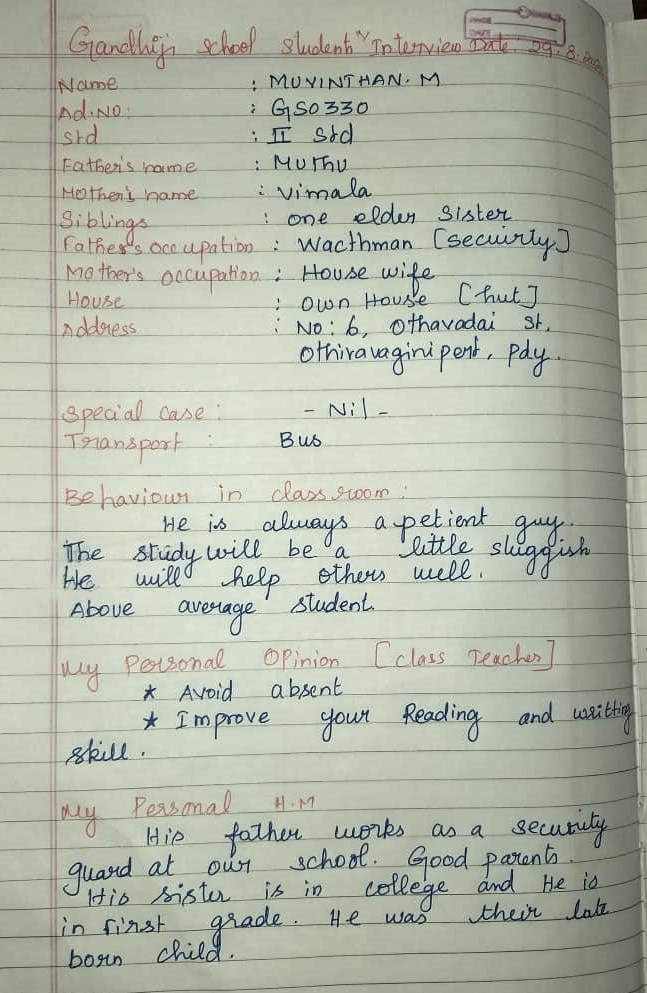 Gandhiji school student's Interview Date 29.8.
Name : MUVINTHAN. M
Ad.NO: : GS0330
Std : II Std
Father's name : MUTHU
Mother's name : Vimala
Siblings : one elder Sister
Father's occupation : Wacthman [secuirty]
Mother's occupation : House wife
House : Own House [hut]
Address : No: 6, Othavadai St,
Othiravaginipent, Pdy.
Special case : - Nil -
Transport : Bus
Behaviour in class room :
He is always a petient guy.
The study will be a little sluggish
He will help others well.
Above average student.
My Personal Opinion [class Teacher]
* Avoid absent
* Improve your Reading and writting
skill.
My Personal H.M
His father works as a security
guard at our school. Good parents.
His sister is in college and He is
in first grade. He was their late
born child.